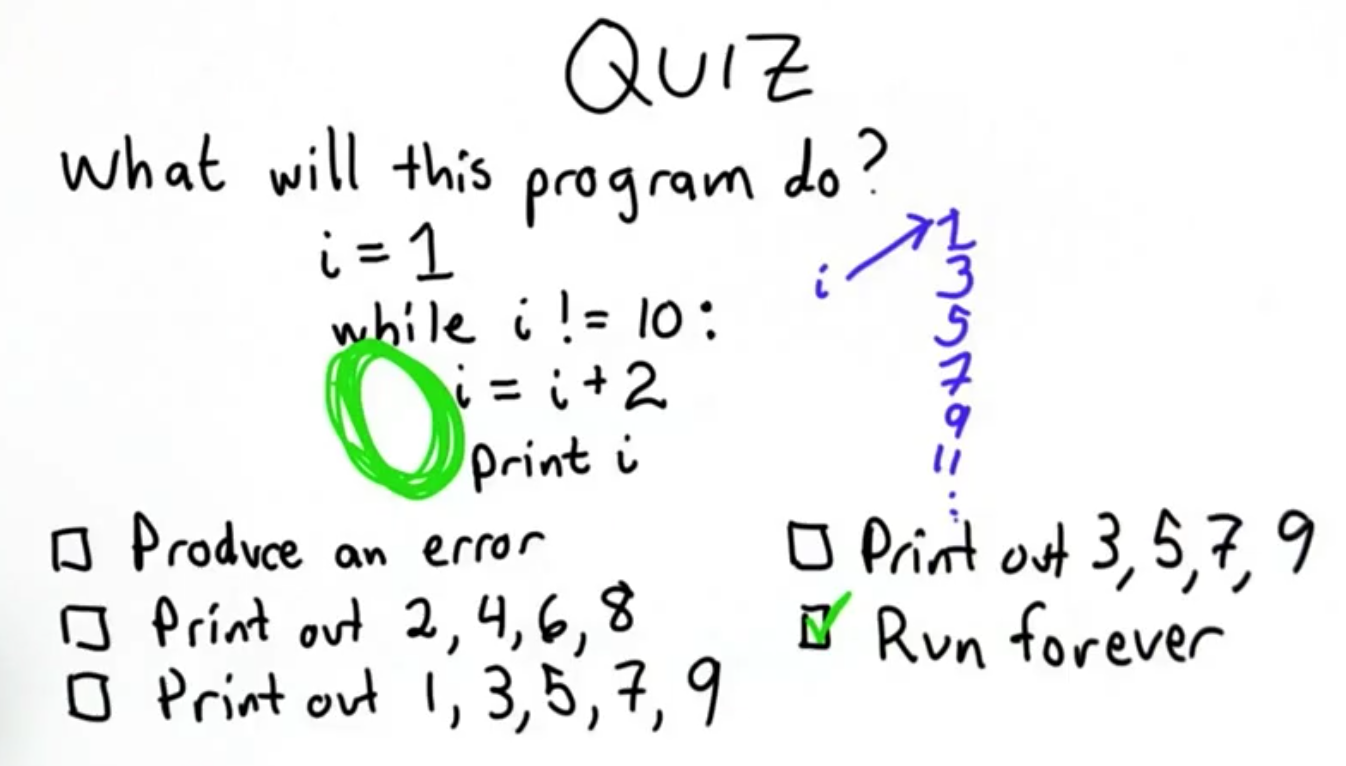 QUIZ
What will this program do?
i = 1
while i != 10:
i = i + 2
print i
i
1
3
5
7
9
11
⋮
Produce an error
Print out 2, 4, 6, 8
Print out 1, 3, 5, 7, 9
Print out 3, 5, 7, 9
Run forever